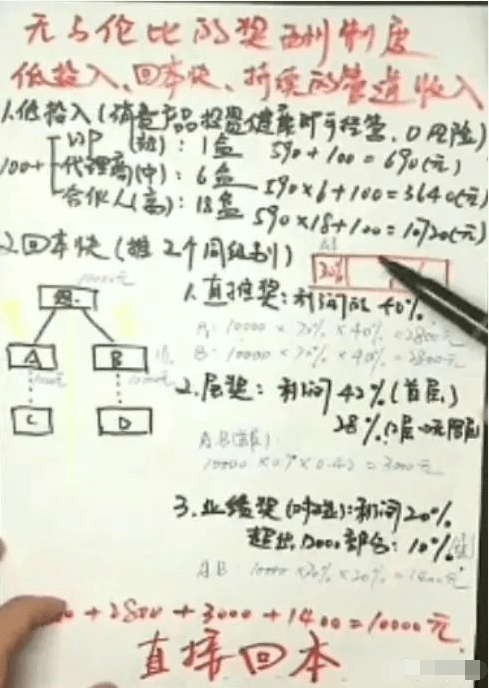 无与伦比的奖酬制度
低投入、回本快、持续的管道收入
1.低投入(消费产品投资健康即可经营、0风险)
100+
VIP (初): 1盒 590+100=690(元)
代理商(中): 6盒 590×6+100=3640(元)
合伙人(高): 18盒 590×18+100=10720(元)
2.回本快(推2个同级别)
30%
1.直推奖:利润的40%
A: 10000×70%×40%=2800元
B: 10000×70%×40%=2800元
A
B
C
D
2.层奖: 利润42%(首层)
28%
A.B(首层):
10000×0.7×0.42=3000元
3.业绩奖 利润20%
超出 部分: 10%
A B: 10000×70%×20%=1400元
+2800+3000+1400=10000元
直接回本